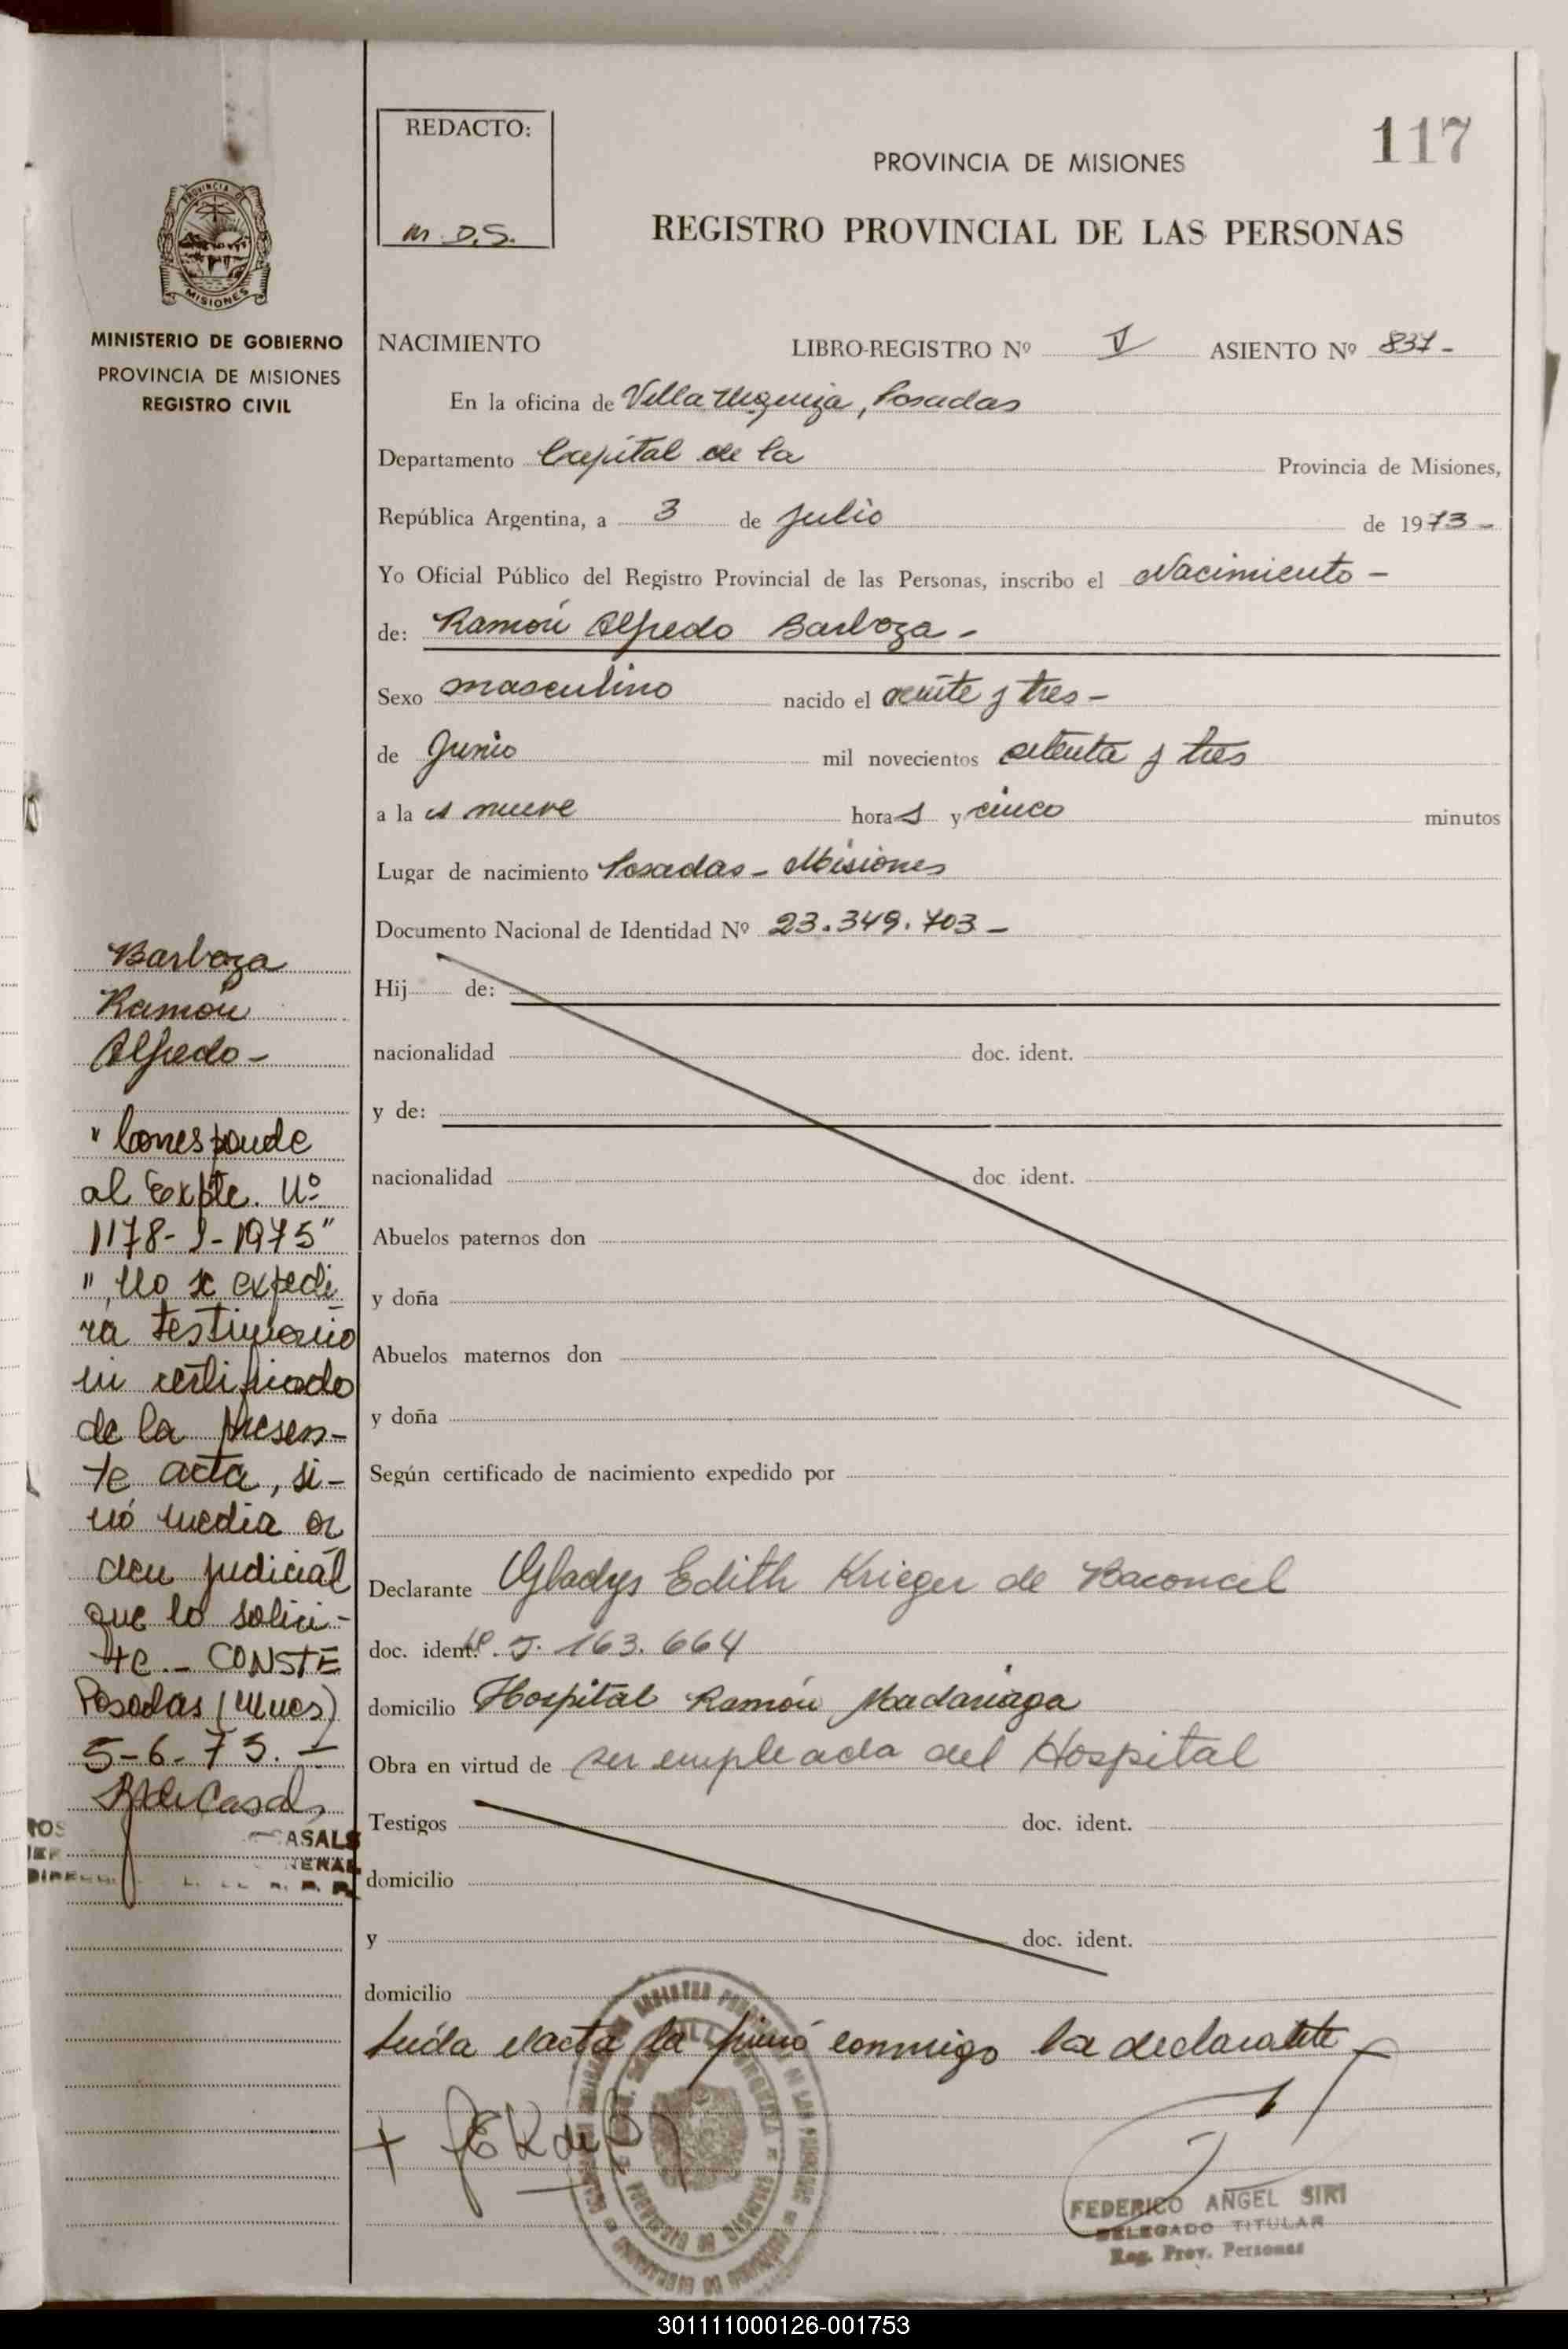 PROVINCIA DE
MISIONES
MINISTERIO DE GOBIERNO
PROVINCIA DE MISIONES
REGISTRO CIVIL
Barboza
Ramón
Alfredo-
"Corresponde
al Expte. Nº
1178-J-1975"
"No se expedi
rá testimonio
ni certificado
de la presen-
te acta, si-
nó media or
den judicial
que lo solici-
te.- CONSTE
Posadas (Mnes)
5-6-75.-
CASALS
REDACTO:
M.D.S.
117
PROVINCIA DE MISIONES
REGISTRO PROVINCIAL DE LAS PERSONAS
NACIMIENTO LIBRO-REGISTRO Nº V ASIENTO Nº 837-
En la oficina de Villa Urquiza, Posadas
Departamento Capital de la Provincia de Misiones,
República Argentina, a 3 de Julio de 1973-
Yo Oficial Público del Registro Provincial de las Personas, inscribo el Nacimiento-
de: Ramón Alfredo Barboza-
Sexo masculino nacido el veinte y tres-
de Junio mil novecientos setenta y tres
a la s nueve hora s y cinco minutos
Lugar de nacimiento Posadas- Misiones
Documento Nacional de Identidad Nº 23.349.703-
Hij de:
nacionalidad doc. ident.
y de:
nacionalidad doc. ident.
Abuelos paternos don
y doña
Abuelos maternos don
y doña
Según certificado de nacimiento expedido por
Declarante Gladys Edith Krieger de
doc. ident. 5.163.664
domicilio Hospital Ramón Madariaga
Obra en virtud de ser empleada del Hospital
Testigos doc. ident.
domicilio
y doc. ident.
domicilio
Leída el acta la firmó conmigo la declarante
FEDERICO ANGEL SIRI
DELEGADO TITULAR
Reg. Prov. Personas
301111000126-001753